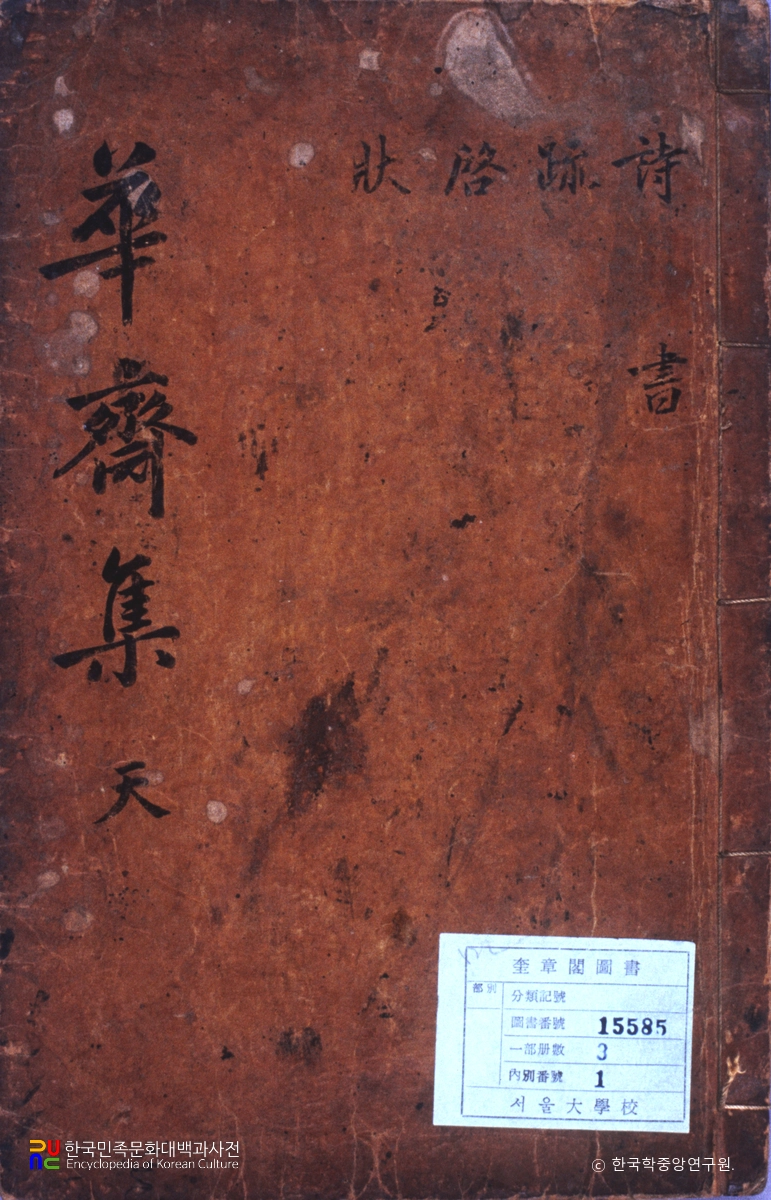 華齋集 天
詩 疏 啓 狀
書
奎章閣圖書
部別
分類記號
圖書番號 15585
一部册數 3
內別番號 1
서울大學校
한국민족문화대백과사전
Encyclopedia of Korean Culture
© 한국학중앙연구원.